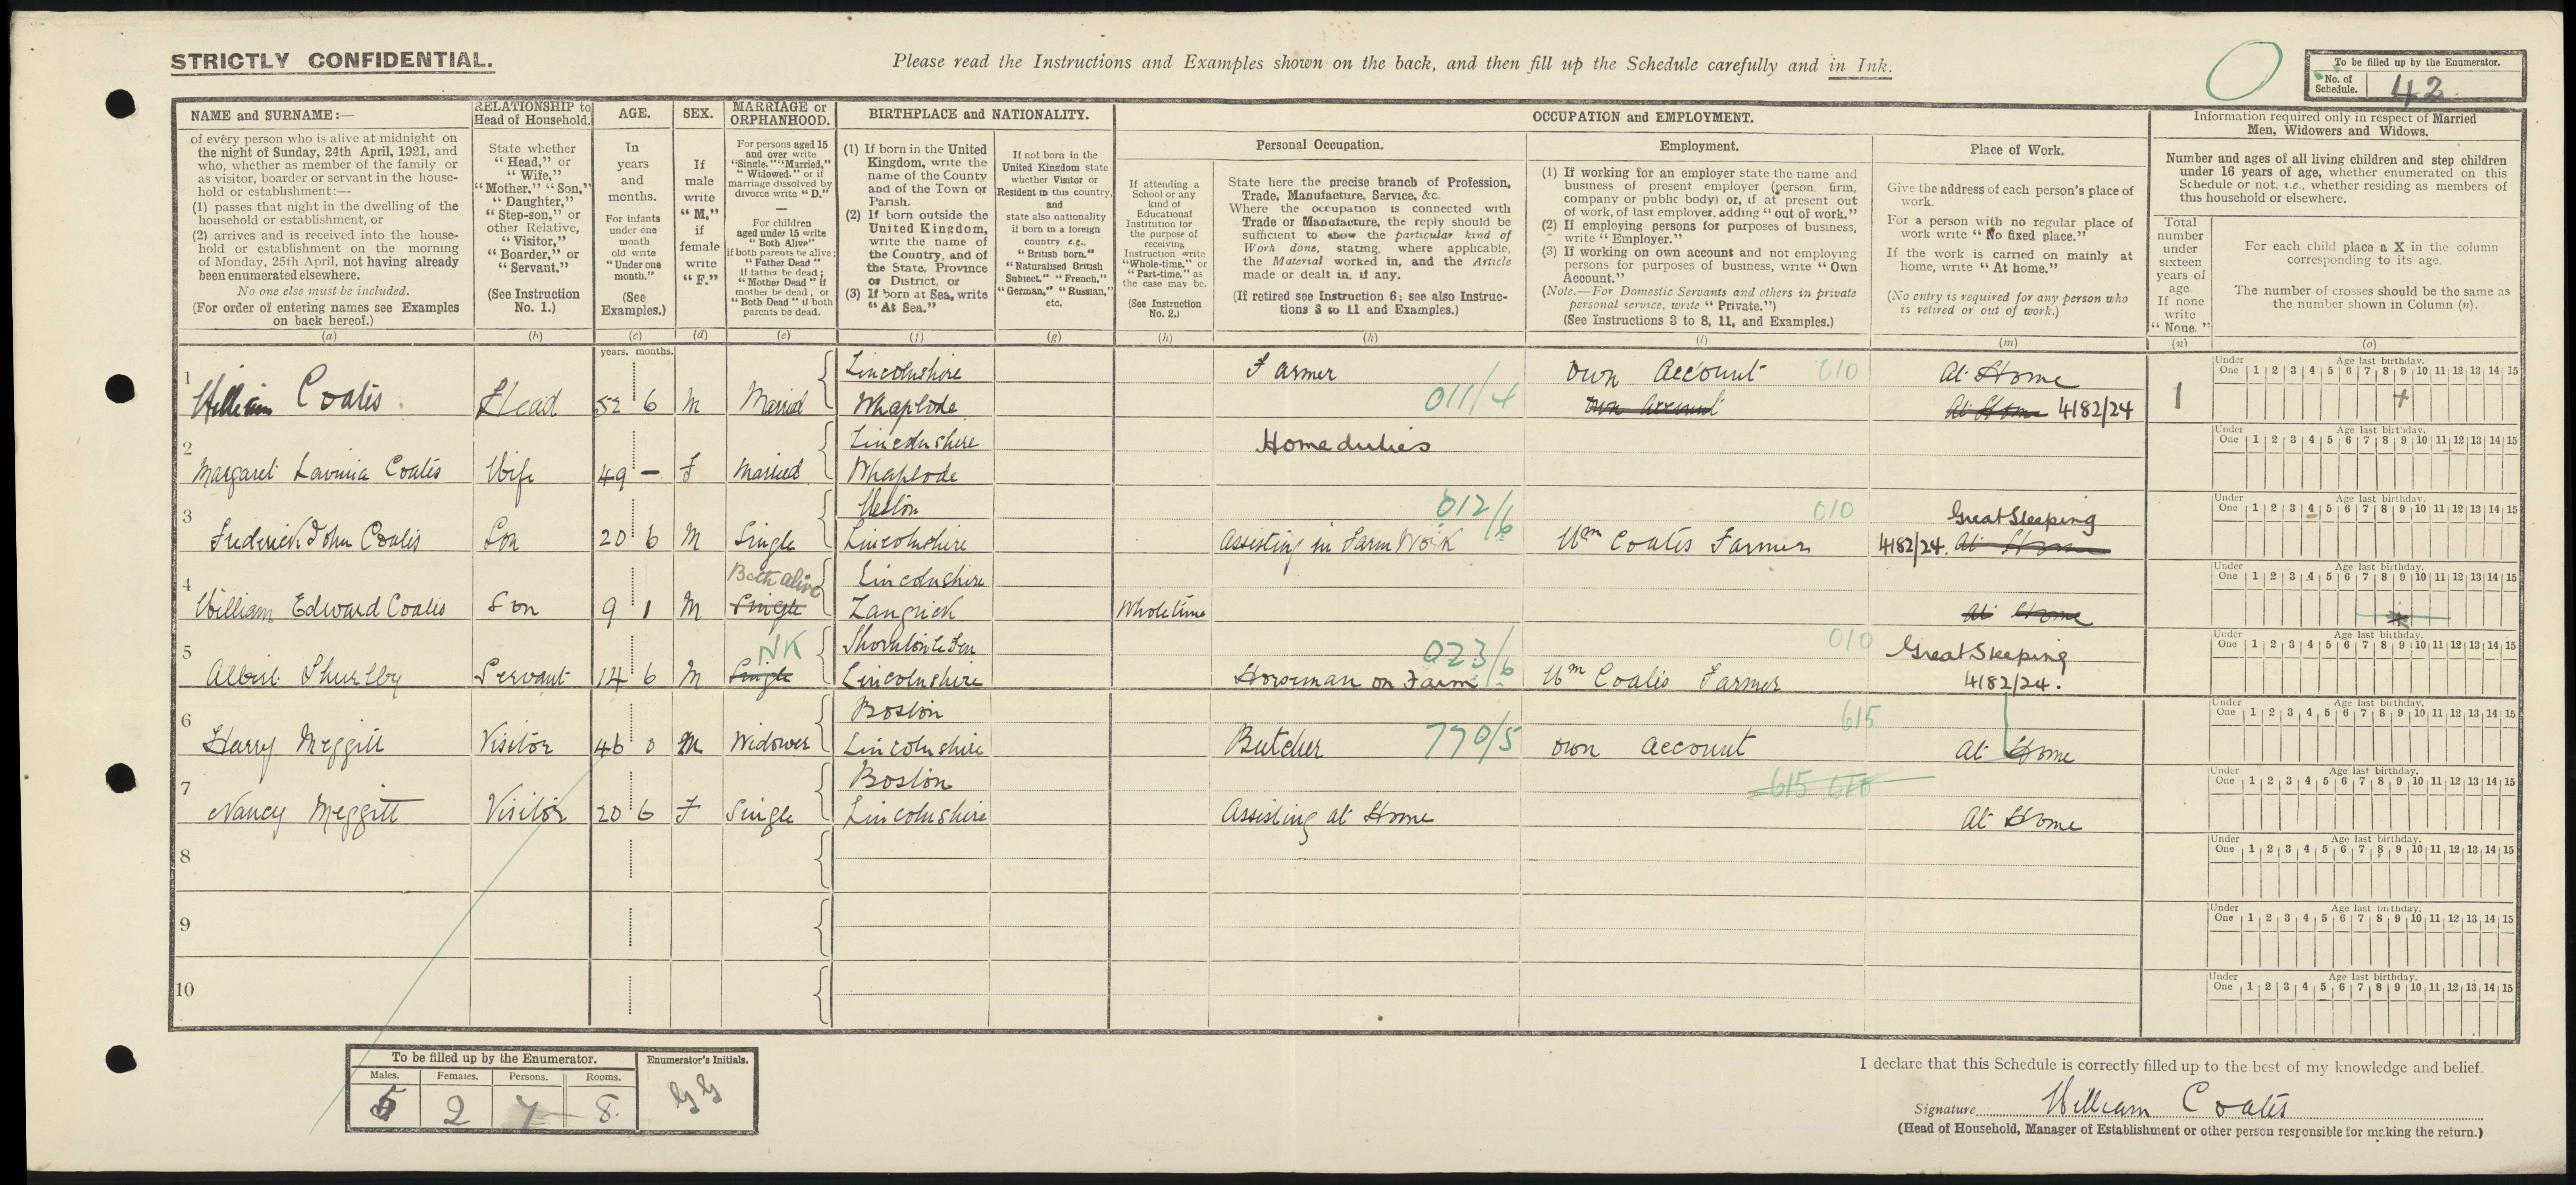 STRICTLY CONFIDENTIAL.
Please read the Instructions and Examples shown on the back, and then fill up the Schedule carefully and in Ink.
To be filled up by the Enumerator.
No. of Schedule. 42
NAME and SURNAME:—
of every person who is alive at midnight on
the night of Sunday, 24th April, 1921, and
who, whether as member of the family or
as visitor, boarder or servant in the house-
hold or establishment:—
(1) passes that night in the dwelling of the
household or establishment, or
(2) arrives and is received into the house-
hold or establishment on the morning
of Monday, 25th April, not having already
been enumerated elsewhere.
No one else must be included.
(For order of entering names see Examples
on back hereof.)
(a)
RELATIONSHIP to
Head of Household.
State whether
"Head," or
"Wife,"
"Mother," "Son,"
"Daughter,"
"Step-son," or
other Relative,
"Visitor,"
"Boarder," or
"Servant."
(See Instruction
No. 1.)
(b)
AGE.
In
years
and
months.
For infants
under one
month
old write
"Under one
month."
(See
Examples.)
(c)
SEX.
If
male
write
"M,"
if
female
write
"F."
(d)
MARRIAGE or
ORPHANHOOD.
For persons aged 15
and over write
"Single," "Married,"
"Widowed," or if
marriage dissolved by
divorce write "D."
—
For children
aged under 15 write
"Both Alive"
if both parents be alive;
"Father Dead"
if father be dead;
"Mother Dead" if
mother be dead, or
"Both Dead" if both
parents be dead.
(e)
BIRTHPLACE and NATIONALITY.
(1) If born in the United
Kingdom, write the
name of the County
and of the Town or
Parish.
(2) If born outside the
United Kingdom,
write the name of
the Country, and of
the State, Province
or District, or
(3) If born at Sea, write
"At Sea."
(f)
If not born in the
United Kingdom state
whether Visitor or
Resident in this country,
and
state also nationality
if born in a foreign
country, e.g.,
"British born,"
"Naturalised British
Subject," "French,"
"German," "Russian,"
etc.
(g)
OCCUPATION and EMPLOYMENT.
Personal Occupation.
If attending a
School or any
kind of
Educational
Institution for
the purpose of
receiving
Instruction write
"Whole-time," or
"Part-time," as
the case may be.
(See Instruction
No. 2.)
(h)
State here the precise branch of Profession,
Trade, Manufacture, Service, &c.
Where the occupation is connected with
Trade or Manufacture, the reply should be
sufficient to show the particular kind of
Work done, stating, where applicable,
the Material worked in, and the Article
made or dealt in, if any.
(If retired see Instruction 6; see also Instruc-
tions 3 to 11 and Examples.)
(k)
Employment.
(1) If working for an employer state the name and
business of present employer (person, firm,
company or public body) or, if at present out
of work, of last employer, adding "out of work."
(2) If employing persons for purposes of business,
write "Employer."
(3) If working on own account and not employing
persons for purposes of business, write "Own
Account."
(Note.—For Domestic Servants and others in private
personal service, write "Private.")
(See Instructions 3 to 8, 11, and Examples.)
(l)
Place of Work.
Give the address of each person's place of
work.
For a person with no regular place of
work write "No fixed place."
If the work is carried on mainly at
home, write "At home."
(No entry is required for any person who
is retired or out of work.)
(m)
Information required only in respect of Married
Men, Widowers and Widows.
Number and ages of all living children and step children
under 16 years of age, whether enumerated on this
Schedule or not, i.e., whether residing as members of
this household or elsewhere.
Total
number
under
sixteen
years of
age.
If none
write
"None."
(n)
For each child place a X in the column
corresponding to its age.
The number of crosses should be the same as
the number shown in Column (n).
(o)
years. months.
Under One Age last birthday. 1 2 3 4 5 6 7 8 9 10 11 12 13 14 15
1 William Coates Head 52 6 M Married Lincolnshire Whaplode Farmer 011/4 own Account 010 At Home
own account At Home 4182/24 1 +
Under One Age last birthday. 1 2 3 4 5 6 7 8 9 10 11 12 13 14 15
2 Margaret Lavinia Coates Wife 49 - F Married Lincolnshire Whaplode Home duties
Under One Age last birthday. 1 2 3 4 5 6 7 8 9 10 11 12 13 14 15
3 Frederick John Coates Son 20 6 M Single Weston Lincolnshire Assisting in Farm Work 012/6 Wm Coates Farmer 010 Great Steeping
4182/24. At Home
Under One Age last birthday. 1 2 3 4 5 6 7 8 9 10 11 12 13 14 15
4 William Edward Coates Son 9 1 M Both alive Single Lincolnshire Langrick Whole time At Home
Under One Age last birthday. 1 2 3 4 5 6 7 8 9 10 11 12 13 14 15
5 Albert Servant 14 6 M NK Single Thornton le Fen Lincolnshire Horseman on Farm 023/6 Wm Coates Farmer 010 Great Steeping
4182/24.
Under One Age last birthday. 1 2 3 4 5 6 7 8 9 10 11 12 13 14 15
6 Harry Meggitt Visitor 46 0 M Widower Boston Lincolnshire Butcher 770/5 own account 615 At Home
Under One Age last birthday. 1 2 3 4 5 6 7 8 9 10 11 12 13 14 15
7 Nancy Meggitt Visitor 20 6 F Single Boston Lincolnshire Assisting at Home 615 At Home
Under One Age last birthday. 1 2 3 4 5 6 7 8 9 10 11 12 13 14 15
8
Under One Age last birthday. 1 2 3 4 5 6 7 8 9 10 11 12 13 14 15
9
Under One Age last birthday. 1 2 3 4 5 6 7 8 9 10 11 12 13 14 15
10
To be filled up by the Enumerator.
Enumerator's Initials.
Males. Females. Persons. Rooms.
5 2 7 8 GG
I declare that this Schedule is correctly filled up to the best of my knowledge and belief.
Signature William Coates
(Head of Household, Manager of Establishment or other person responsible for making the return.)